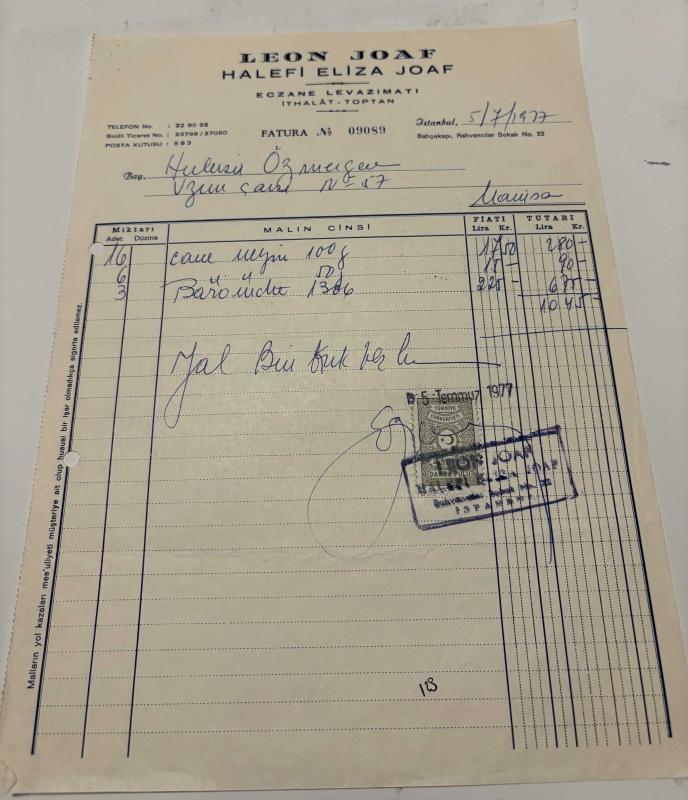 LEON JOAF
HALEFİ ELİZA JOAF
ECZANE LEVAZIMATI
İTHALÂT - TOPTAN
TELEFON No. : 22 60 58
Sicilli Ticaret No. : 23799/27050
POSTA KUTUSU : 683
FATURA № 09089
İstanbul, 5/7/1977
Bahçekapı, Rahvancılar Sokak No. 22
Bay, Hulusi Özmerger
Uzun çarşı No 57
Manisa
Miktarı MALIN CİNSİ FİATI TUTARI
Adet Düzine Lira Kr. Lira Kr.
16 100g 17 50 280 -
6 50g 15 - 90 -
3 225 - 675 -
1045 -
Yal Bin kırk beş
5 Temmuz 1977
TÜRKİYE
CUMHURİYETİ
LEON JOAF
HALEFİ ELİZA JOAF
İSTANBUL
Malların yol kazaları mes'uliyeti müşteriye ait olup hususi bir işar olmadıkça sigorta edilemez.
123